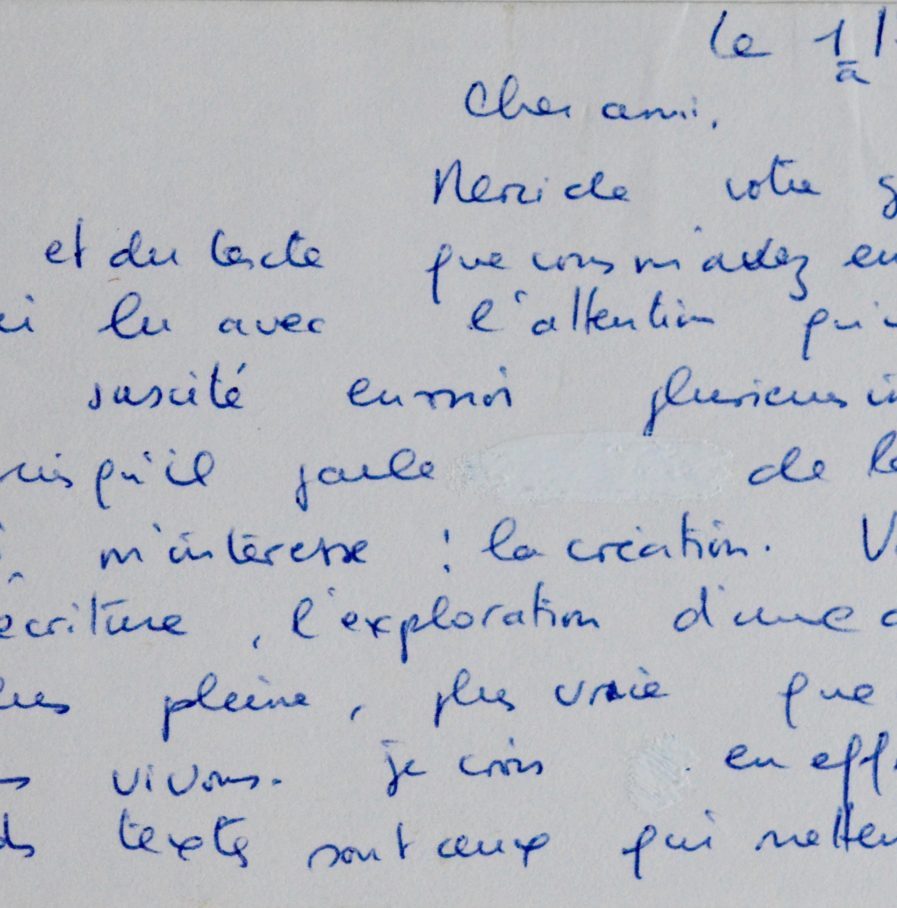 Le 1
Cher ami,
Merci de votre
et du texte que vous m'avez
lu avec l'attention
suscité en moi plusieurs
puisqu'il parle de
m'intéresse : la création.
écriture, l'exploration d'une
plus pleine, plus vraie que
vivons. je crois en eff
textes sont ceux qui metten